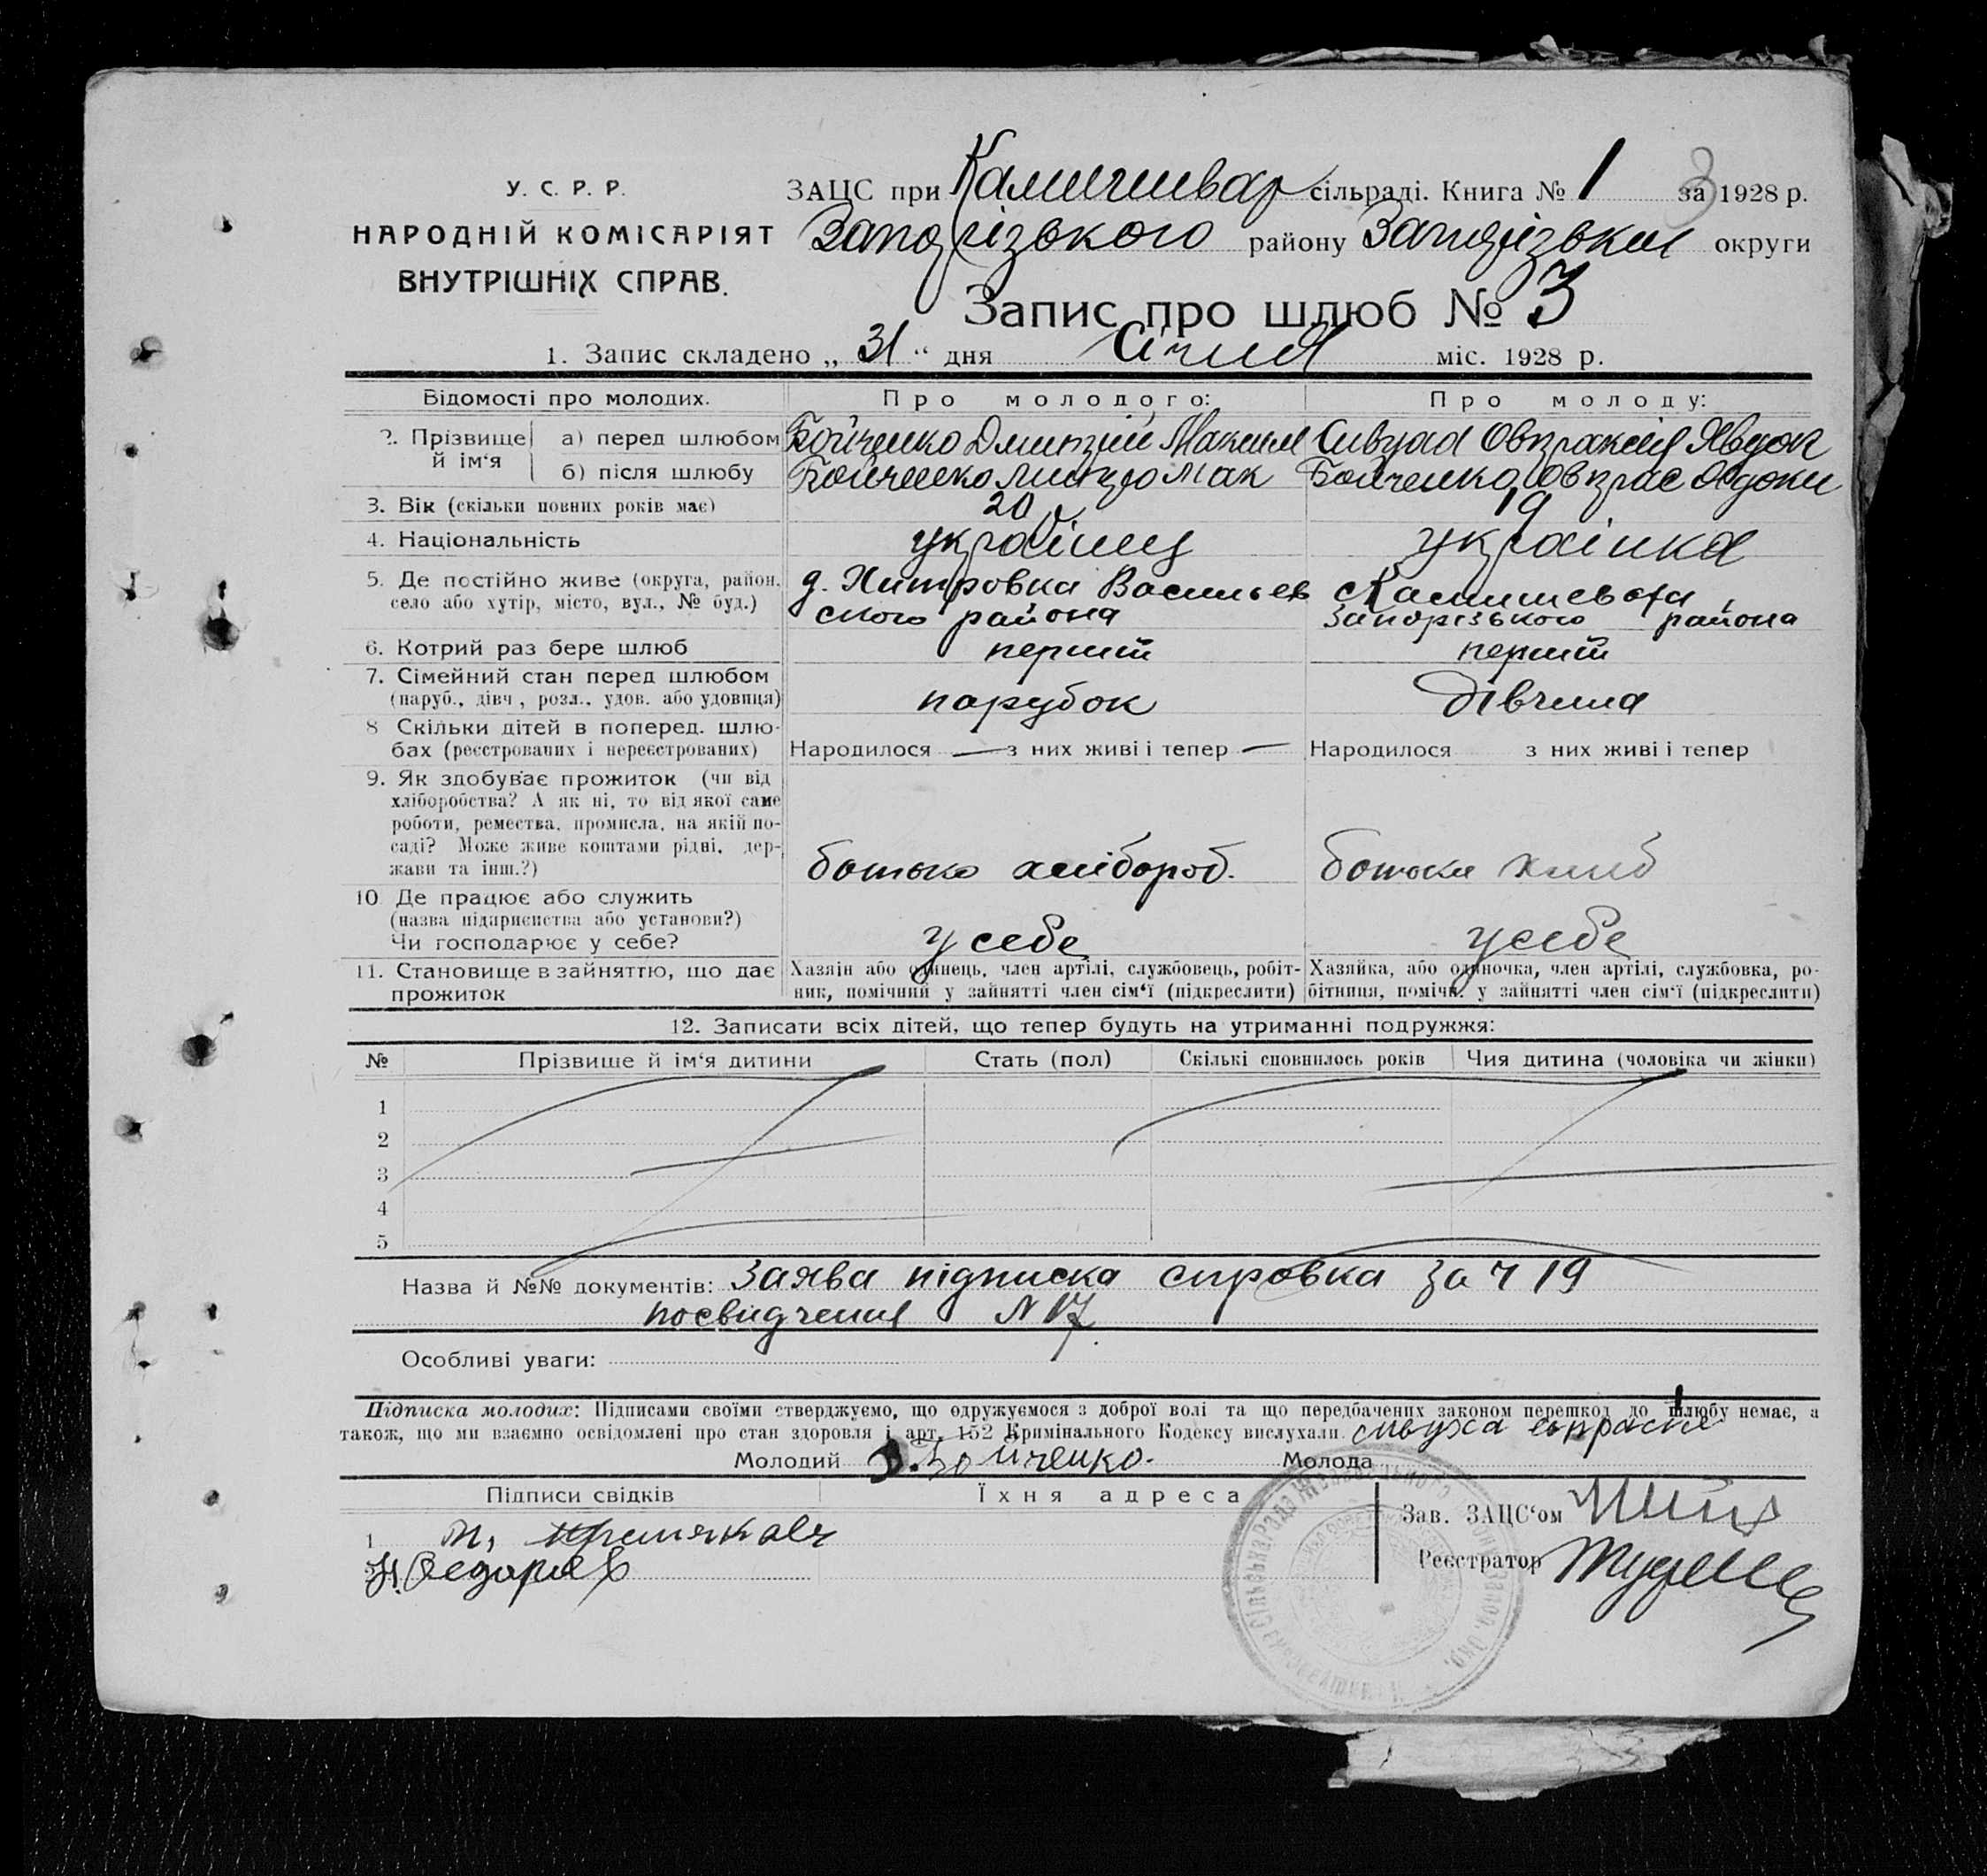 У. С. Р. Р.
НАРОДНІЙ КОМІСАРІЯТ
ВНУТРІШНІХ СПРАВ.
ЗАЦС при Камишевар сільраді. Книга № 1 за 1928 р.
3
Запорізького району Запорізької округи
Запис про шлюб № 3
1. Запис складено „ 31 “ дня Січня міс. 1928 р.
Відомості про молодих. Про молодого: Про молоду:
2. Прізвище й ім‘я а) перед шлюбом Бойченко Дмитрій Максим
б) після шлюбу Бойченко Бойченко
3. Вік (скільки повних років має) 20 19
4. Національність українец українка
5. Де постійно живе (округа, район, село або хутір, місто, вул., № буд.) д. Хитровка Васильевского района Запорізького района
6. Котрий раз бере шлюб перший перший
7. Сімейний стан перед шлюбом (паруб., дівч., розл., удов. або удовиця) парубок дівчина
8 Скільки дітей в поперед. шлюбах (реєстрованих і нереєстрованих) Народилося — з них живі і тепер — Народилося з них живі і тепер
9. Як здобуває прожиток (чи від хліборобства? А як ні, то від якої саме роботи, ремества, промисла, на якій посаді? Може живе коштами рідні, держави та інш.?) батько хлібороб. батьки хліб
10 Де працює або служить (назва підприємства або установи?) Чи господарює у себе? у себе у себе
11. Становище в зайняттю, що дає прожиток
Хазяін або одинець, член артілі, службовець, робітник, помічний у зайнятті член сім‘ї (підкреслити)
Хазяйка, або одиночка, член артілі, службовка, робітниця, помічн. у зайнятті член сім‘ї (підкреслити)
12. Записати всіх дітей, що тепер будуть на утриманні подружжя:
№ Прізвише й ім‘я дитини Стать (пол) Скількі сповнилось років Чия дитина (чоловіка чи жінки)
1
2
3
4
5
Назва й №№ документів: Заява підписка справка за ч 19
посвидчення N 17
Особливі уваги:
Підписка молодих: Підписами своїми стверджуємо, що одружуємося з доброї волі та що передбачених законом перешкод до шлюбу немає, а
також, що ми взаємно освідомлені про стан здоровля і арт. 152 Кримінального Кодексу вислухали.
Молодий Д. Бойченко. Молода
Підписи свідків Їхня адреса
Зав. ЗАЦС‘ом
1
Реєстратор